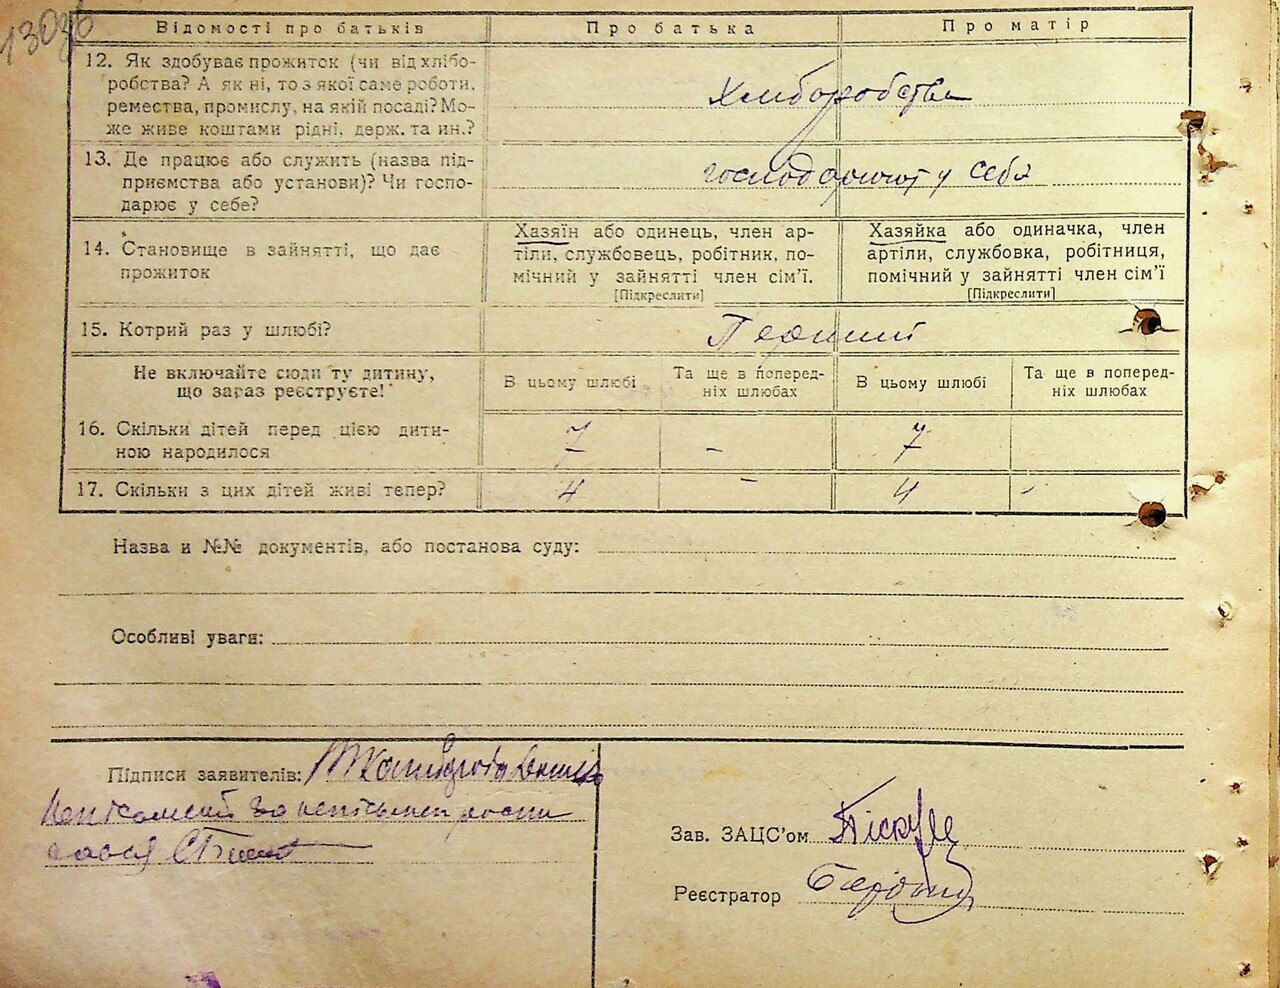 130зв
Відомості про батьків
Про батька
Про матір
12. Як здобуває прожиток (чи від хлібо-
робства? А як ні, то з якої саме роботи,
ремества, промислу, на якій посаді? Мо-
же живе коштами рідні, держ. та ин.?
Хліборобства
13. Де працює або служить (назва під-
приємства або установи)? Чи госпо-
дарює у себе?
господарюют у себя
14. Становище в зайнятті, що дає
прожиток
Хазяїн або одинець, член ар-
тіли, службовець, робітник, по-
мічний у зайнятті член сім'ї.
[Підкреслити]
Хазяйка або одиначка, член
артіли, службовка, робітниця,
помічний у зайнятті член сім'ї
[Підкреслити]
15. Котрий раз у шлюбі?
Перший
Не включайте сюди ту дитину,
що зараз реєструєте!
В цьому шлюбі
Та ще в поперед-
ніх шлюбах
В цьому шлюбі
Та ще в поперед-
ніх шлюбах
16. Скільки дітей перед цією дити-
ною народилося
7 - 7
17. Скільки з цих дітей живі тепер?
4 - 4 -
Назва и №№ документів, або постанова суду:
Особливі уваги:
Підписи заявителів:
за
Зав. ЗАЦС'ом
Реєстратор